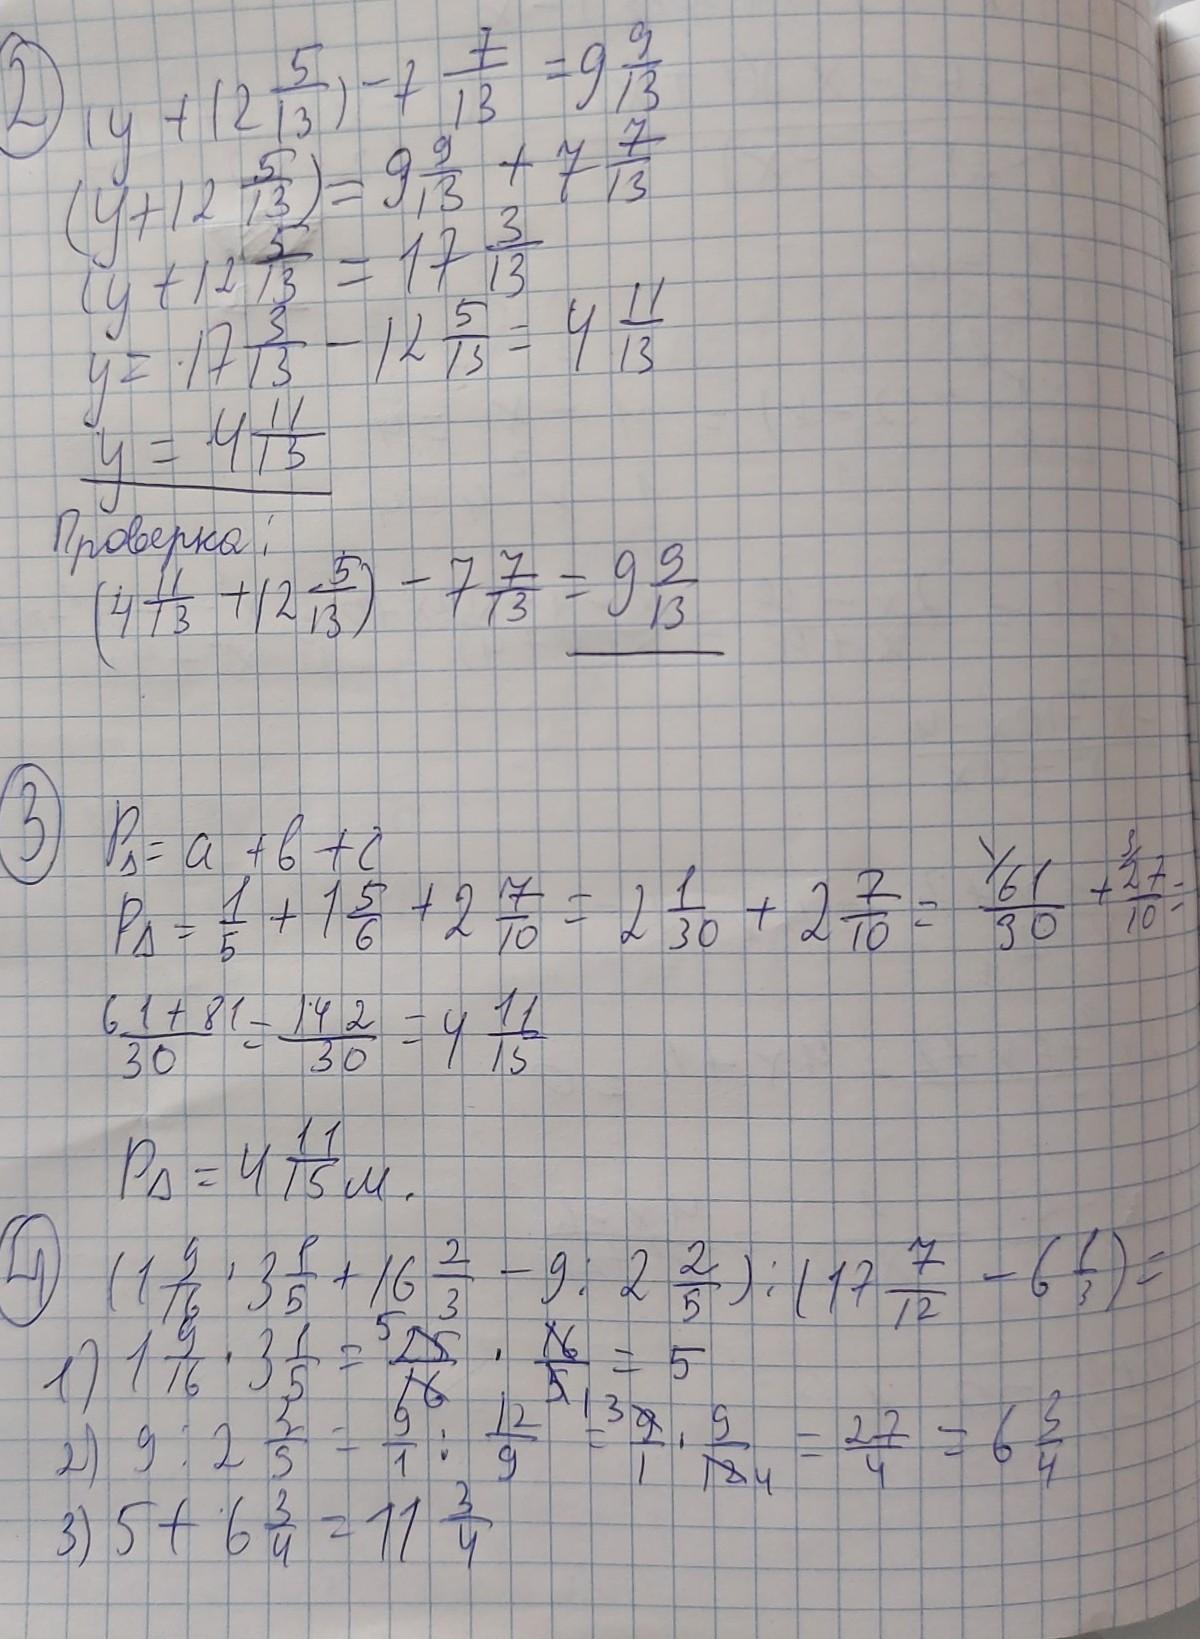 2
(y + 12 5/13) - 7 7/13 = 9 9/13
(y + 12 5/13) = 9 9/13 + 7 7/13
(y + 12 5/13 = 17 3/13
y = 17 3/13 - 12 5/13 = 4 11/13
y = 4 11/13
Проверка:
(4 11/13 + 12 5/13) - 7 7/13 = 9 9/13
3
P∆ = a + b + c
P∆ = 1/5 + 1 5/6 + 2 7/10 = 2 1/30 + 2 7/10 = 1/ 61/30 + 3/ 27/10 =
61 + 81/30 = 142/30 = 4 11/15
P∆ = 4 11/15 м.
4
(1 9/16 · 3 1/5 + 16 2/3 - 9 : 2 2/5) : (17 7/12 - 6 1/3) =
1) 1 9/16 · 3 1/5 = 5 25/16 · 16/5 1 = 5
2) 9 : 2 2/5 = 9/1 : 12/9 = 3 9/1 · 9/12 4 = 27/4 = 6 3/4
3) 5 + 6 3/4 = 11 3/4